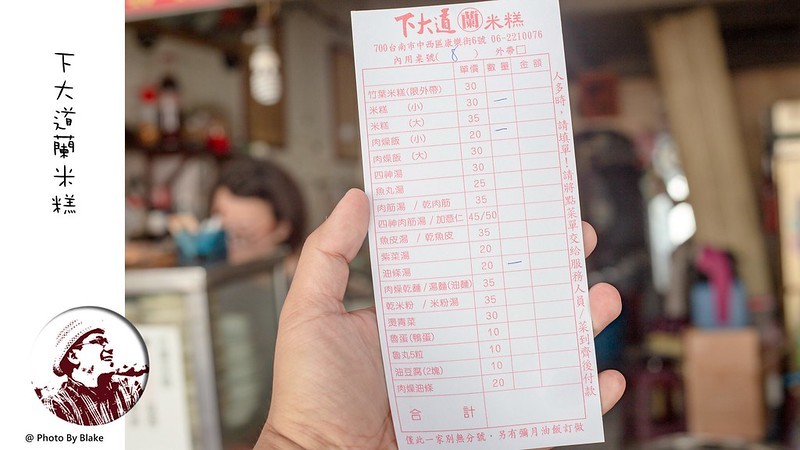 下大道蘭米糕
@ Photo By Blake
下大道 蘭 米糕
700台南市中西區康樂街6號 06-2210076
內用桌號( 8 ) 外帶□
單價 數量 金額
竹葉米糕(限外帶) 30
米糕 (小) 30 一
米糕 (大) 35
肉燥飯 (小) 20 一
肉燥飯 (大)
四神湯 30
魚丸湯 25
肉筋湯 / 乾肉筋 35
四神肉筋湯 / 加薏仁 45/50
魚皮湯 / 乾魚皮 35
紫菜湯 20
油條湯 20 一
肉燥乾麵 / 湯麵(油麵) 35
乾米粉 / 米粉湯 35
燙青菜 30
魯蛋(鴨蛋) 10
魯丸5粒 10
油豆腐(2塊) 10
肉燥油條 20
合計
僅此一家別無分號，另有彌月油飯訂做
人多時，請填單！請將點菜單交給服務人員/菜到齊後付款